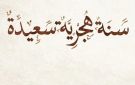 سَنَة هِجْرِيَّة سَعِيدَةٌ